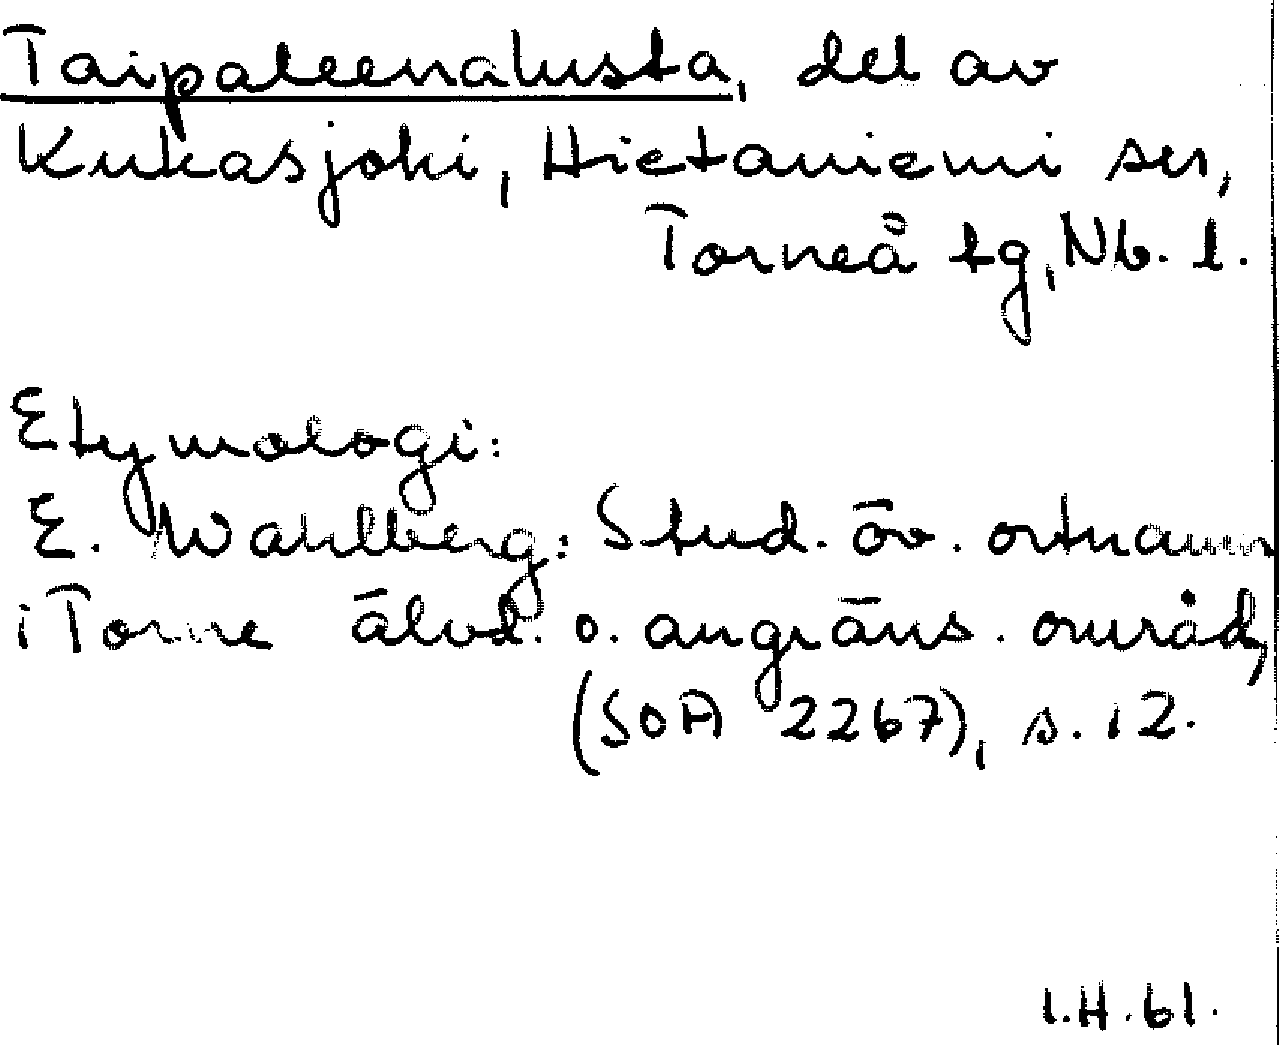 Taipaleenalusta, del av
Kukasjoki, Hietaniemi sn,
Torneå tg, Nb. l.
Etymologi:
E. Wahlberg: Stud. öv. ortnamn
i Torne älvd. o. angräns. områd,
(SOA 2267), s. 12.
I.H.61.